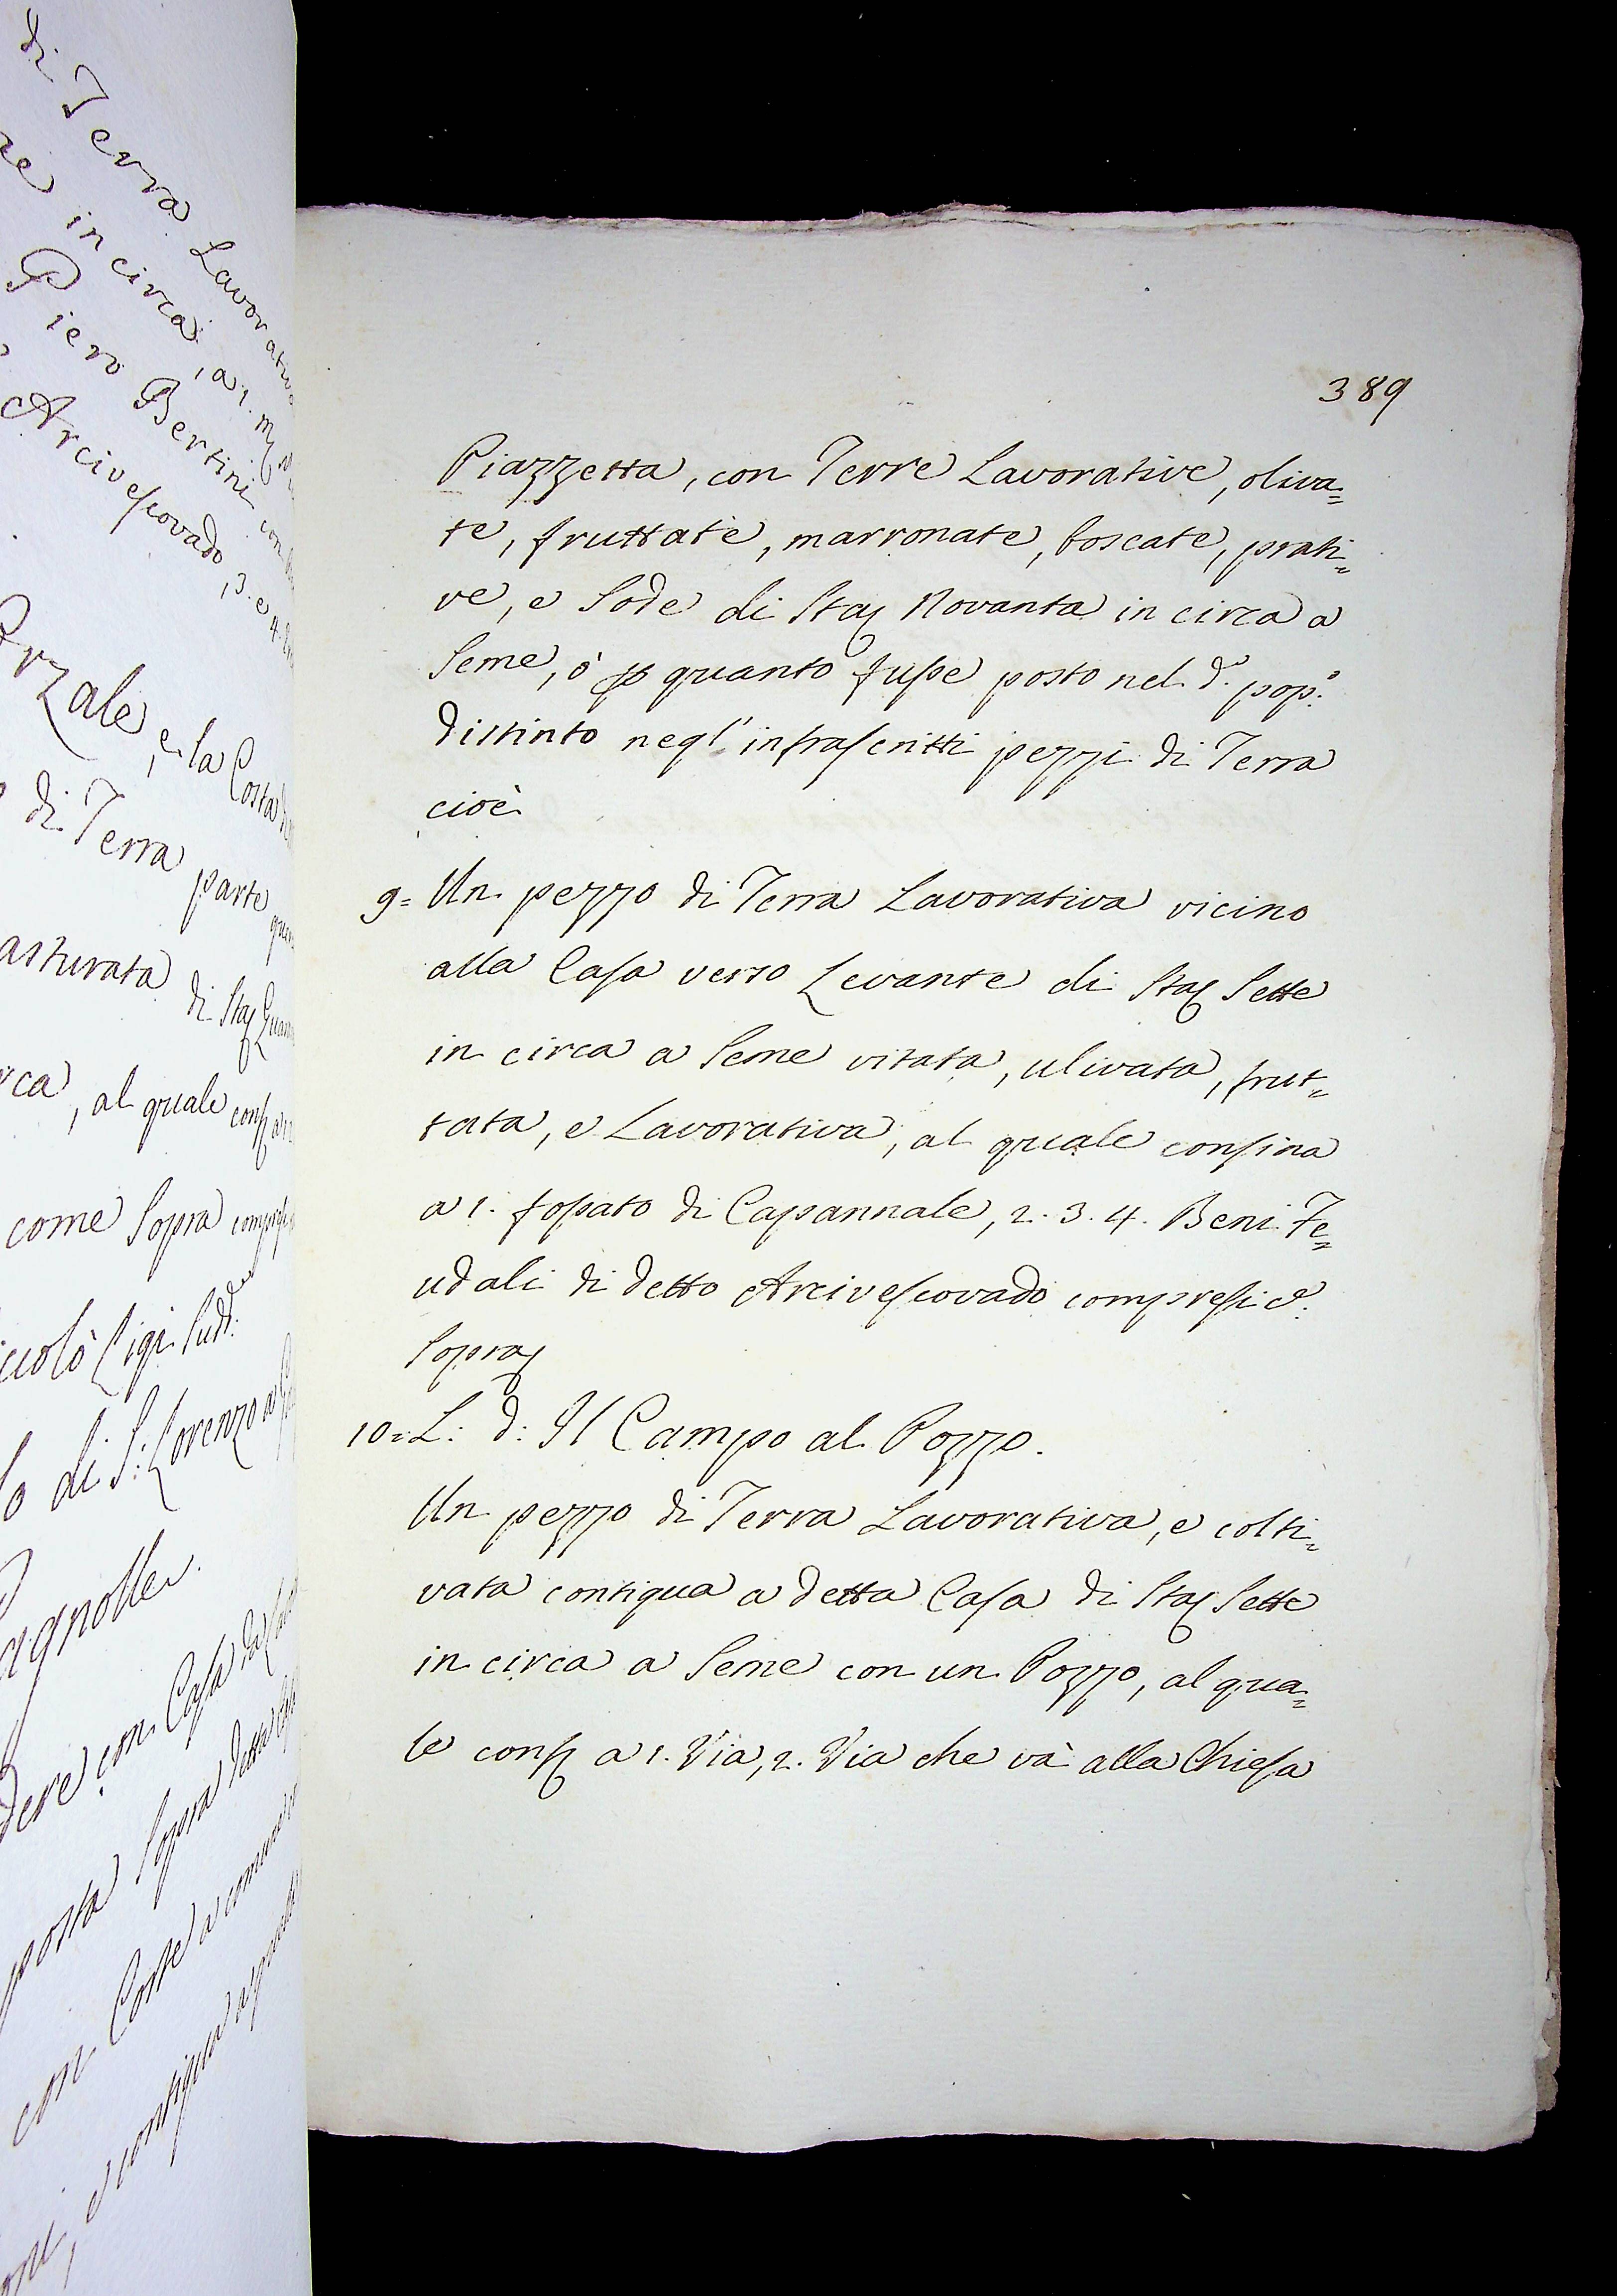 di Terra Lavorativa
in circa, a 1.
Piero Bertini
Arcivescovado, 3. e 4.
e la Costa
di Terra parte
di Staj
al quale conf
come Sopra
Ligi Sudd:
di S: Lorenzo a
con Casa
posta Sopra detta
con Corte a comune
contigua
389
Piazzetta, con Terre Lavorative, oliva=
te, fruttate, marronate, boscate, prati=
ve, e Sode di Staj Novanta in circa a
Seme, ò p quanto fusse posto nel d.° pop.°
distinto negl' infrascritti pezzi di Terra
cioè
9= Un pezzo di Terra Lavorativa vicino
alla Casa verso Levante di Staj Sette
in circa a Seme vitata, ulivata, frut=
tata, e Lavorativa, al quale confina
a 1. fossato di Capannale, 2. 3. 4. Beni Fe=
udali di detto Arcivescovado compresi c.
Sopra
10= L: d: Il Campo al Pozzo.
Un pezzo di Terra Lavorativa, e colti=
vata contigua a detta Casa di Staj Sette
in circa a Seme con un Pozzo, al qua=
le conf a 1. Via, 2. Via che và alla Chiesa